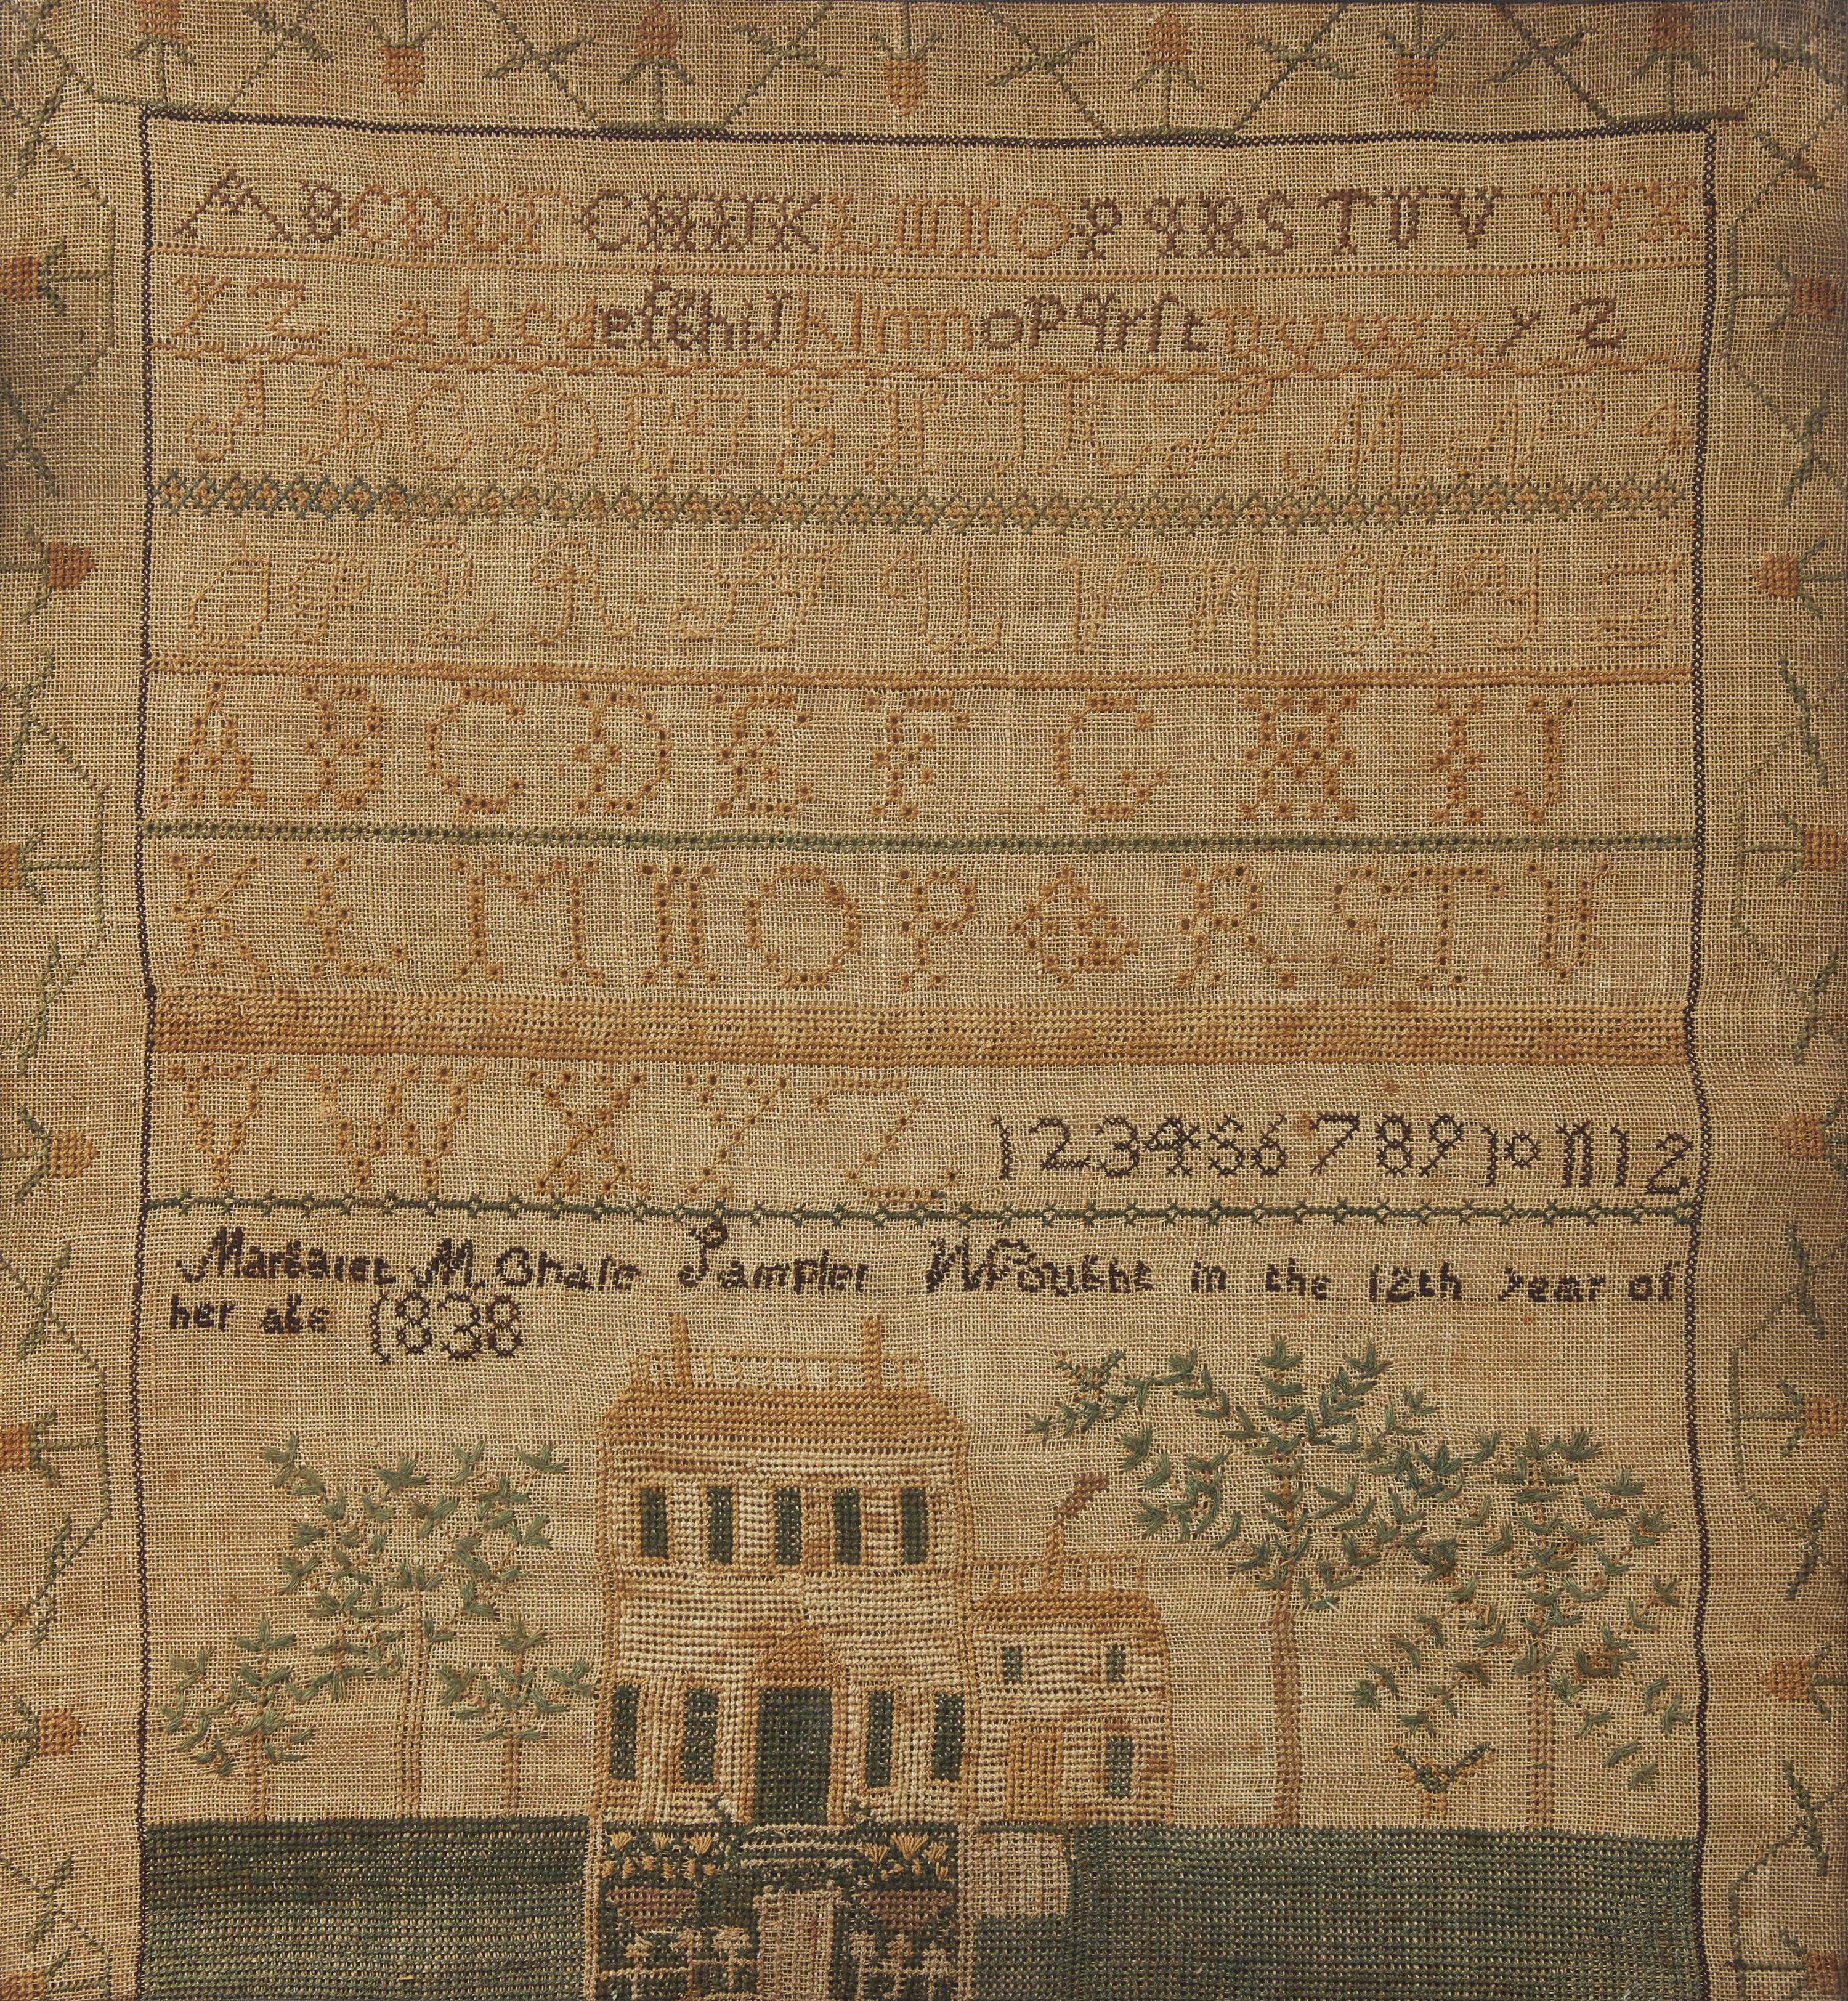 A B C D E F G H I J K L M N O P Q R S T U V W X
Y Z a b c d e f g h i J k l m n o p q r ſ t u v w x y z
A B C D E F G H I K L M N P Q
O P Q R S T U V W X Y Z
A B C D E F G H I J
K L M N O P Q R S T U
V W X Y Z 1 2 3 4 5 6 7 8 9 10 11 12
Margaret M. Ghale Sampler Wrought in the 12th year of
her age 1838